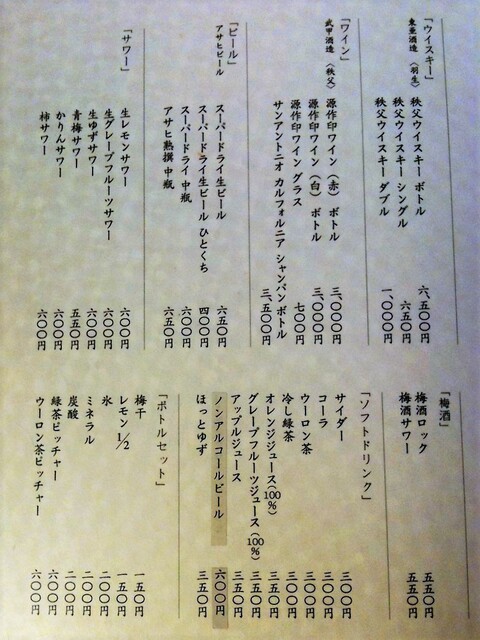 「ウイスキー」
東亜酒造（羽生）
秩父ウイスキー ボトル 六、五〇〇円
秩父ウイスキー シングル 六五〇円
秩父ウイスキー ダブル 一、〇〇〇円
「ワイン」
武甲酒造（秩父）
源作印ワイン（赤）ボトル 三、〇〇〇円
源作印ワイン（白）ボトル 三、〇〇〇円
源作印ワイン グラス 七〇〇円
サンアントニオ カルフォルニア シャンパン ボトル 三、五〇〇円
「ビール」
アサヒビール
スーパードライ生ビール 六五〇円
スーパードライ生ビール ひとくち 四〇〇円
スーパードライ 中瓶 六〇〇円
アサヒ熟撰 中瓶 六五〇円
「サワー」
生レモンサワー 六〇〇円
生グレープフルーツサワー 六〇〇円
生ゆずサワー 六〇〇円
青梅サワー 五五〇円
かりんサワー 六〇〇円
柿サワー 六〇〇円
「梅酒」
梅酒ロック 五五〇円
梅酒サワー 五五〇円
「ソフトドリンク」
サイダー 三〇〇円
コーラ 三〇〇円
ウーロン茶 三〇〇円
冷し緑茶 三〇〇円
オレンジジュース(100%) 三五〇円
グレープフルーツジュース(100%) 三五〇円
アップルジュース 三五〇円
ノンアルコールビール 六〇〇円
ほっとゆず 三五〇円
「ボトルセット」
梅干 一五〇円
レモン1/2 一五〇円
氷 二〇〇円
ミネラル 二〇〇円
炭酸 二〇〇円
緑茶ピッチャー 六〇〇円
ウーロン茶ピッチャー 六〇〇円